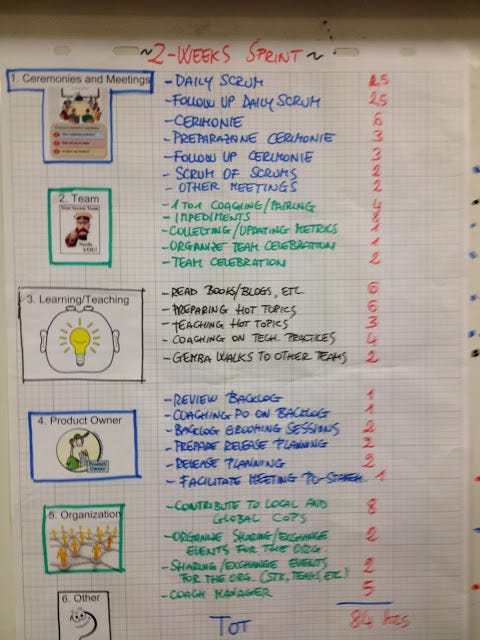 ~2-WEEKS SPRINT~
1. Ceremonies and Meetings
- DAILY SCRUM 2,5
- FOLLOW UP DAILY SCRUM 2,5
- CERIMONIE 6
- PREPARAZIONE CERIMONIE 3
- FOLLOW UP CERIMONIE 3
- SCRUM OF SCRUMS 2
- OTHER MEETINGS 2
2. Team
YOU!
- 1 TO 1 COACHING/PAIRING 4
- IMPEDIMENTS 8
- COLLECTING/UPDATING METRICS 1
- ORGANIZE TEAM CELEBRATION 1
- TEAM CELEBRATION 2
3. Learning/Teaching
- READ BOOKS/BLOGS, ETC 6
- PREPARING HOT TOPICS 6
- TEACHING HOT TOPICS 3
- COACHING ON TECH. PRACTICES 4
- GEMBA WALKS TO OTHER TEAMS 2
4. Product Owner
Product
Owner
- REVIEW BACKLOG 1
- COACHING PO ON BACKLOG 1
- BACKLOG GROOMING SESSIONS 2
- PREPARE RELEASE PLANNING 2
- RELEASE PLANNING 2
- FACILITATE MEETING PO-STAKEH. 1
5. Organization
- CONTRIBUTE TO LOCAL AND 8
GLOBAL COPS
- ORGANIZE SHARING/EXCHANGE 2
EVENTS FOR THE ORG.
- SHARING/EXCHANGE EVENTS 2
FOR THE ORG. (STK, TEAMS, ETC)
- COACH MANAGER 5
6. Other
TOT 84 hrs